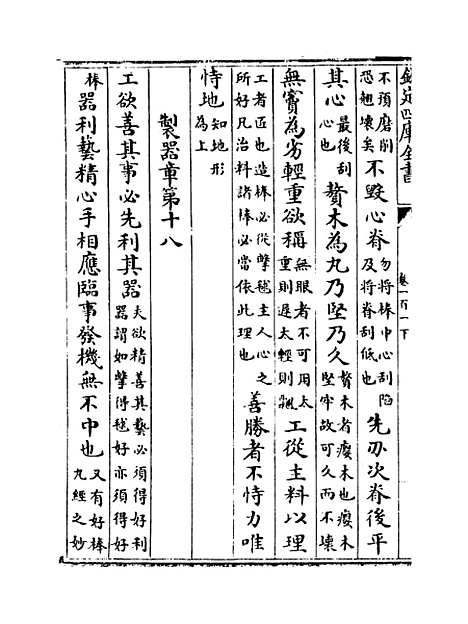 欽定四庫全書
卷一百一下
不須磨削恐翅壞矣不毀心脊勿将棒中心刮陷及将脊刮低也先刃次脊後平
其心最後刮心也贅木為丸乃堅乃久贅木者癭木也癭木堅牢故可久而不壞
無竇為劣輕重欲稱無眼者不可用太重則遲太輕則飄工從主料以理
工者匠也造棒必從擊毬主人心之所好凡治料諸棒必當依此理也善勝者不恃力唯
恃地知地形為上
製器章第十八
工欲善其事必先利其器夫欲精善其藝必須得好利器謂如擊得毬好亦須得好
棒器利藝精心手相應臨事發機無不中也又有好棒九經之妙